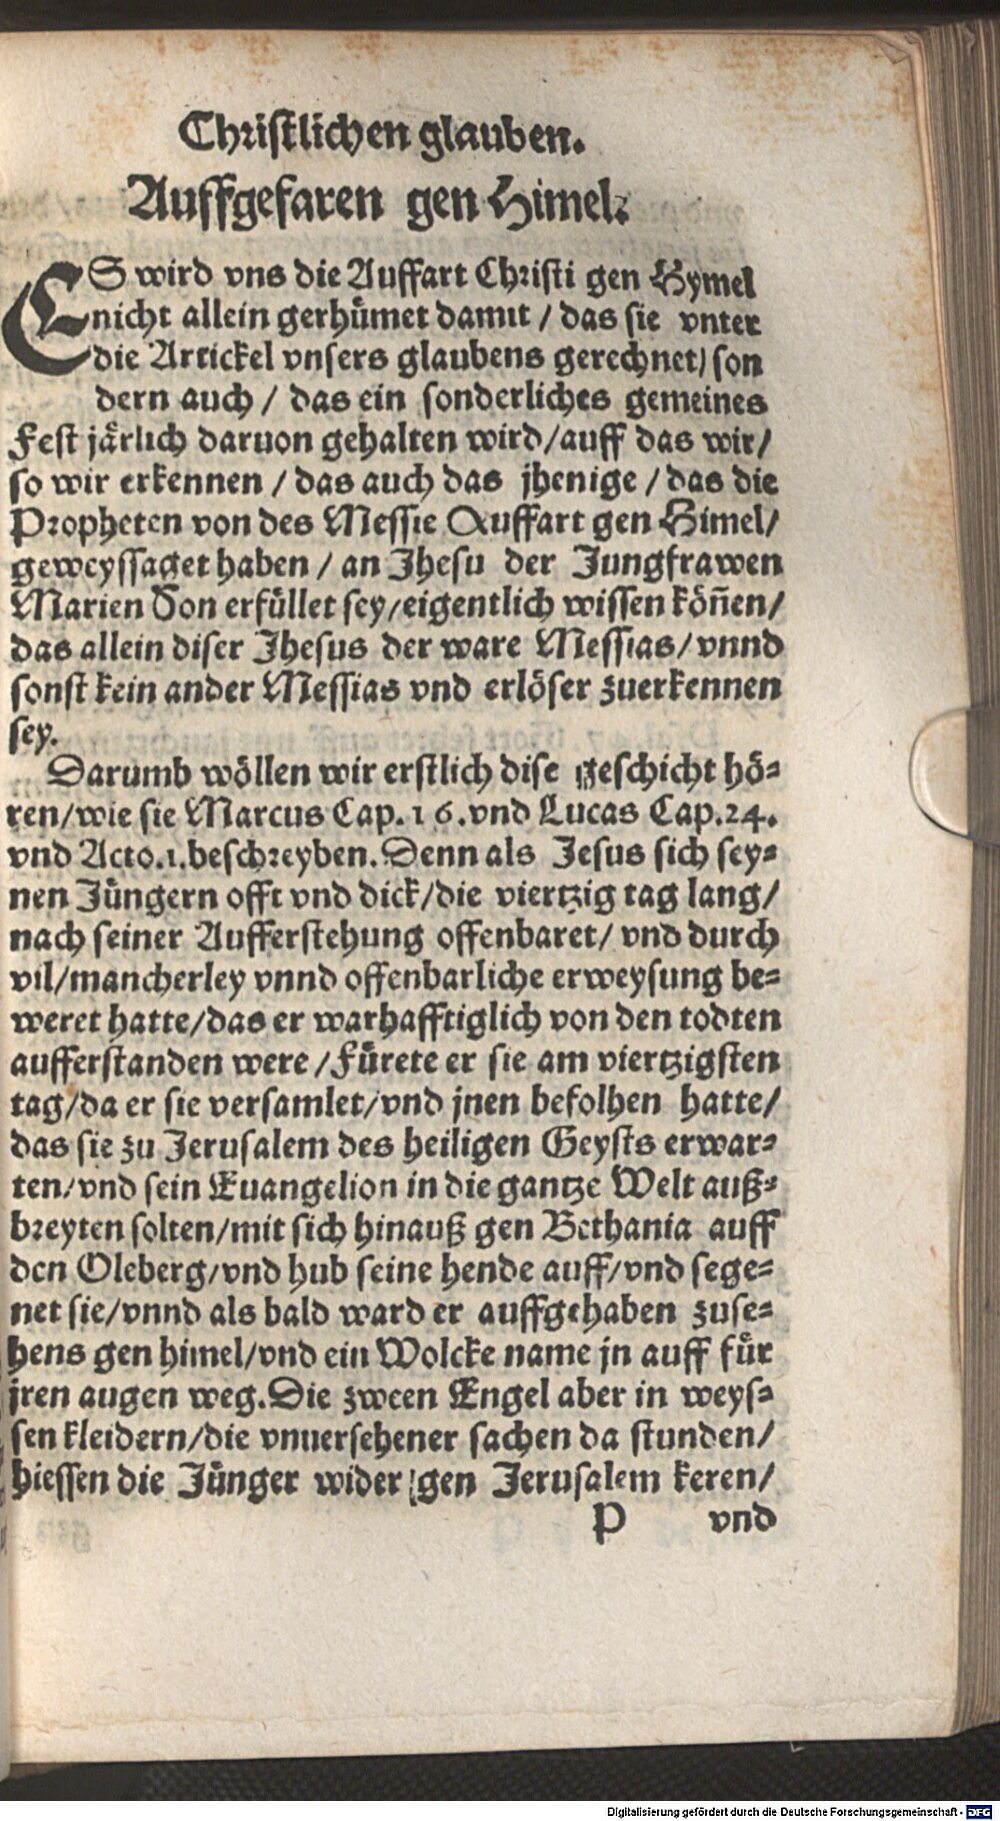 Christlichen glauben.
Auffgefaren gen Himel.
ES wird vns die Auffart Christi gen Hymel
nicht allein gerhümet damit / das sie vnter
die Artickel vnsers glaubens gerechnet / son
dern auch / das ein sonderliches gemeines
Fest järlich daruon gehalten wird / auff das wir /
so wir erkennen / das auch das jhenige / das die
Propheten von des Messie Auffart gen Himel /
geweyssaget haben / an Jhesu der Jungfrawen
Marien Son erfüllet sey / eigentlich wissen kön̄en /
das allein diser Jhesus der ware Messias / vnnd
sonst kein ander Messias vnd erlöser zuerkennen
sey.
Darumb wöllen wir erstlich dise geschicht hö⸗
ren / wie sie Marcus Cap. 16. vnd Lucas Cap. 24.
vnd Acto. 1. beschreyben. Denn als Jesus sich sey⸗
nen Jüngern offt vnd dick / die viertzig tag lang /
nach seiner Aufferstehung offenbaret / vnd durch
vil / mancherley vnnd offenbarliche erweysung be⸗
weret hatte / das er warhafftiglich von den todten
aufferstanden were / fürete er sie am viertzigsten
tag / da er sie versamlet / vnd jnen befolhen hatte /
das sie zu Jerusalem des heiligen Geysts erwar⸗
ten / vnd sein Euangelion in die gantze Welt auß⸗
breyten solten / mit sich hinauß gen Bethania auff
den Oleberg / vnd hub seine hende auff / vnd sege⸗
net sie / vnnd als bald ward er auffgehaben zuse⸗
hens gen himel / vnd ein Wolcke name jn auff für
jren augen weg. Die zween Engel aber in weys⸗
sen kleidern / die vnuersehener sachen da stunden /
hiessen die Jünger wider gen Jerusalem keren /
P vnd
Digitalisierung gefördert durch die Deutsche Forschungsgemeinschaft - DFG